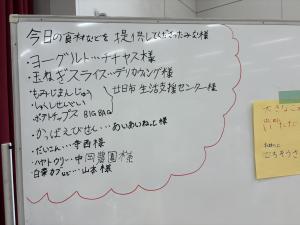 今日の食材などを提供してくださったみな様
・ヨーグルト…チチヤス様
・玉ねぎスライス…デリカウイング様
・もみじまんじゅう
・しゃしんせいどい
・ポテトチップス BIGBAG
廿日市 生活支援センター様
・かっぱえびせん…あいあいねっと様
・だいこん…寺西様
・ハヤトウリ…中岡農園様
・白菜カブなど…山本様
大きなこ
いただ
ごちそうさ